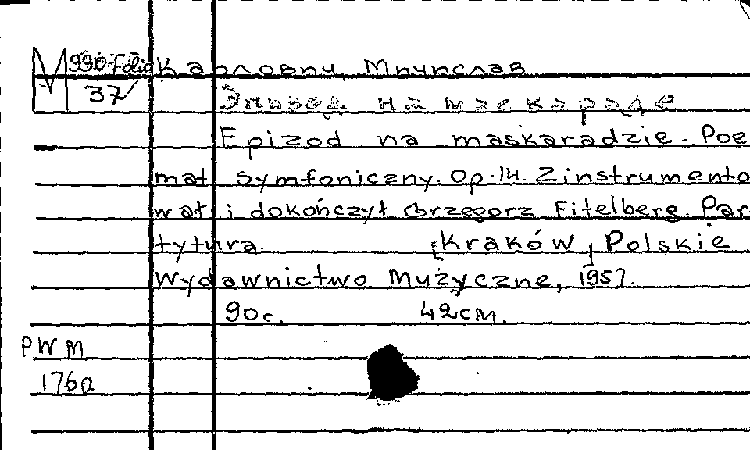 М 990-Folio Карлович, Мечислав
37
Эпизод на маскараде
Epizod na maskaradzie. Poe
mat symfoniczny. Op. 14. Zinstrumento
wał i dokończył Grzegorz Fitelberg Par
tytura [Kraków] Polskie
Wydawnictwo Muzyczne, 1957.
90c. 42см.
PWM
176a